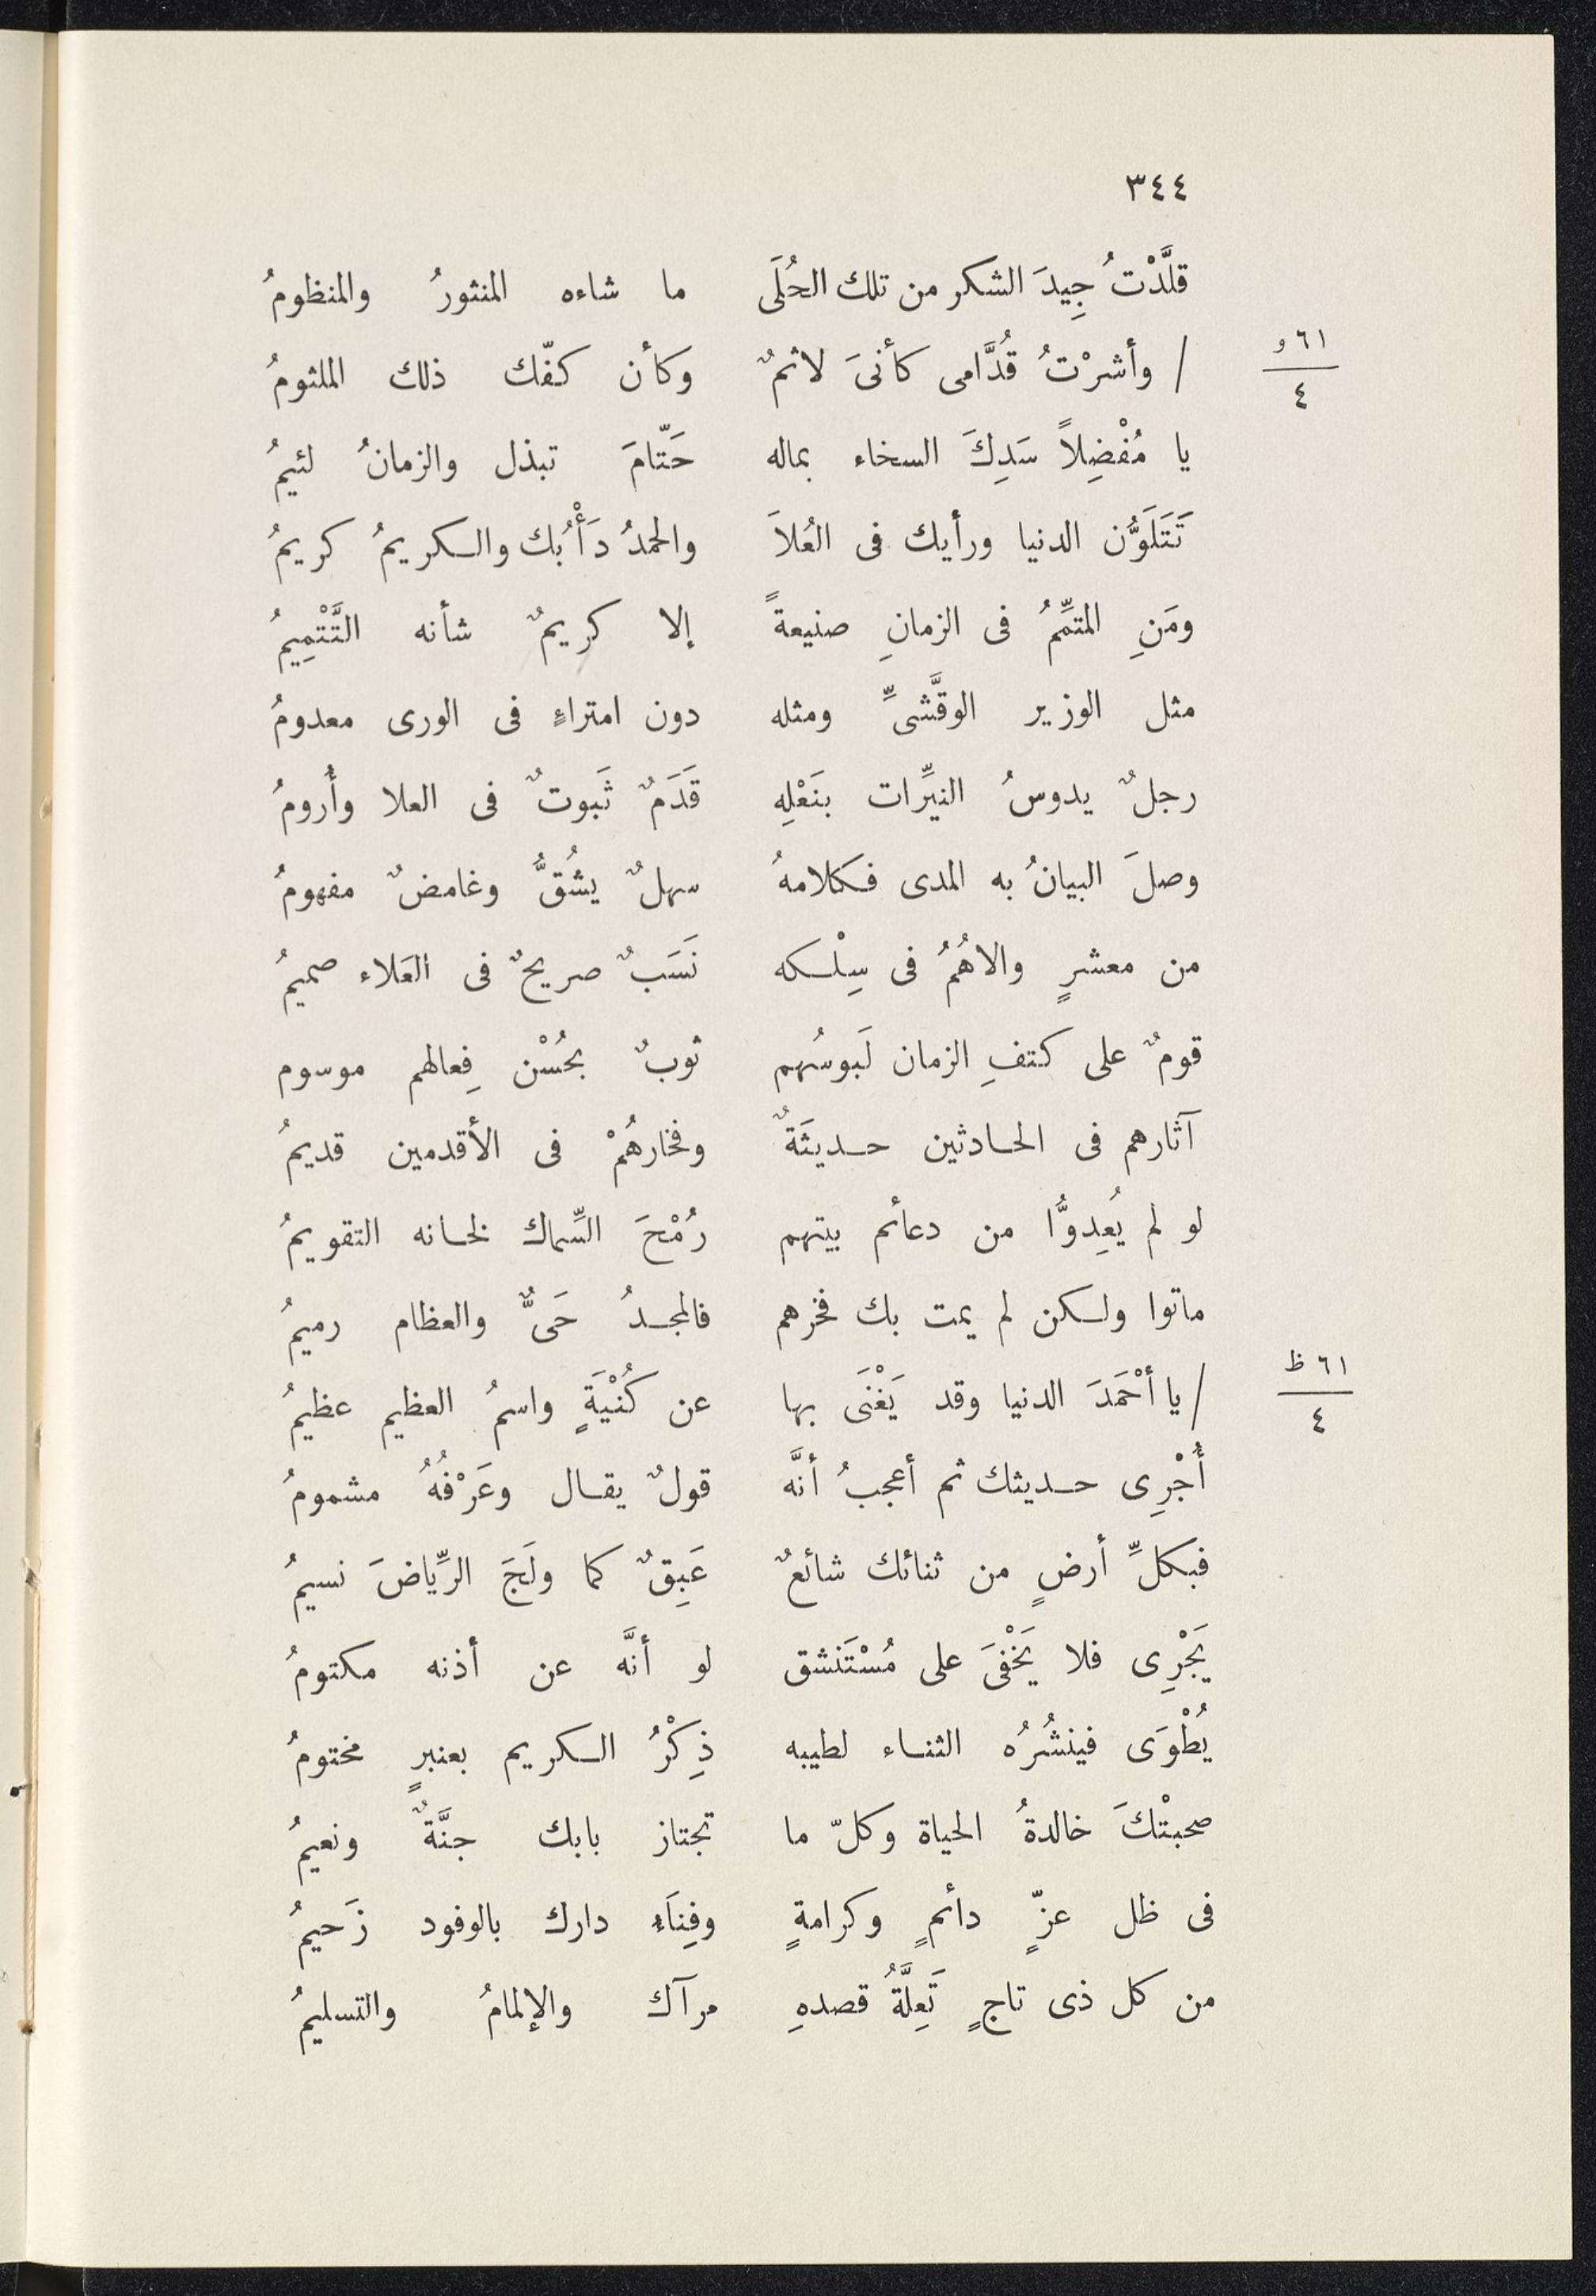 ٣٤٤
قلَّدْتُ جِيدَ الشكر من تلك الحُلَى ما شاءه المنثورُ والمنظومُ
٦١ و
٤
/ وأشرْتُ قُدَّامى كأنىَ لاثمٌ وكأن كفّك ذلك الملثومُ
يا مُفْضِلاً سَدِكَ السخاء بماله حَتّامَ تبذل والزمانُ لئيمُ
تَتَلَوَّن الدنيا ورأيك فى العُلاَ والحمدُ دَأْبُك والكريمُ كريمُ
ومَنِ المتمِّمُ فى الزمانِ صنيعةً إلا كريمٌ شأنه التَّتْمِيمُ
مثل الوزير الوقَّشىِّ ومثله دون امتراءٍ فى الورى معدومُ
رجلٌ يدوسُ النيِّرات بنَعْلِهِ قَدَمٌ ثَبوتٌ فى العلا وأُرومُ
وصلَ البيانُ به المدى فكلامهُ سهلٌ يشُقُّ وغامضٌ مفهومُ
من معشرٍ والاهُمُ فى سِلْكه نَسَبٌ صريحٌ فى العَلاء صميمُ
قومٌ على كتفِ الزمان لَبوسُهم ثوبٌ بحُسْن فِعالهم موسوم
آثارهم فى الحادثين حديثَةٌ وفخارهُمْ فى الأقدمين قديمُ
لو لم يُعِدوُّا من دعائم بيتهم رُمْحَ السِّماك لخانه التقويمُ
ماتوا ولكن لم يمت بك فخرهم فالمجدُ حَىٌّ والعظام رميمُ
٦١ ظ
٤
/ يا أحْمَدَ الدنيا وقد يَغْنَى بها عن كُنْيَةٍ واسمُ العظيم عظيمُ
أُجْرِى حديثك ثم أعجبُ أنَّه قولٌ يقال وعَرْفُهُ مشمومُ
فبكلِّ أرضٍ من ثنائك شائعٌ عَبِقٌ كما ولَجَ الرِّياضَ نسيمُ
يَجْرِى فلا يَخْفىَ على مُسْتَنشق لو أنَّه عن أذنه مكتومُ
يُطْوَى فينشُرُه الثناء لطيبه ذِكْرُ الكريم بعنبرٍ مختومُ
صحبتْكَ خالدةُ الحياة وكلّ ما تجتاز بابك جنَّةٌ ونعيمُ
فى ظل عزٍّ دائمٍ وكرامةٍ وفِنَاءِ دارك بالوفود زَحيمُ
من كل ذى تاجٍ تَعِلَّةُ قصدهِ مرآك والإلمامُ والتسليمُ